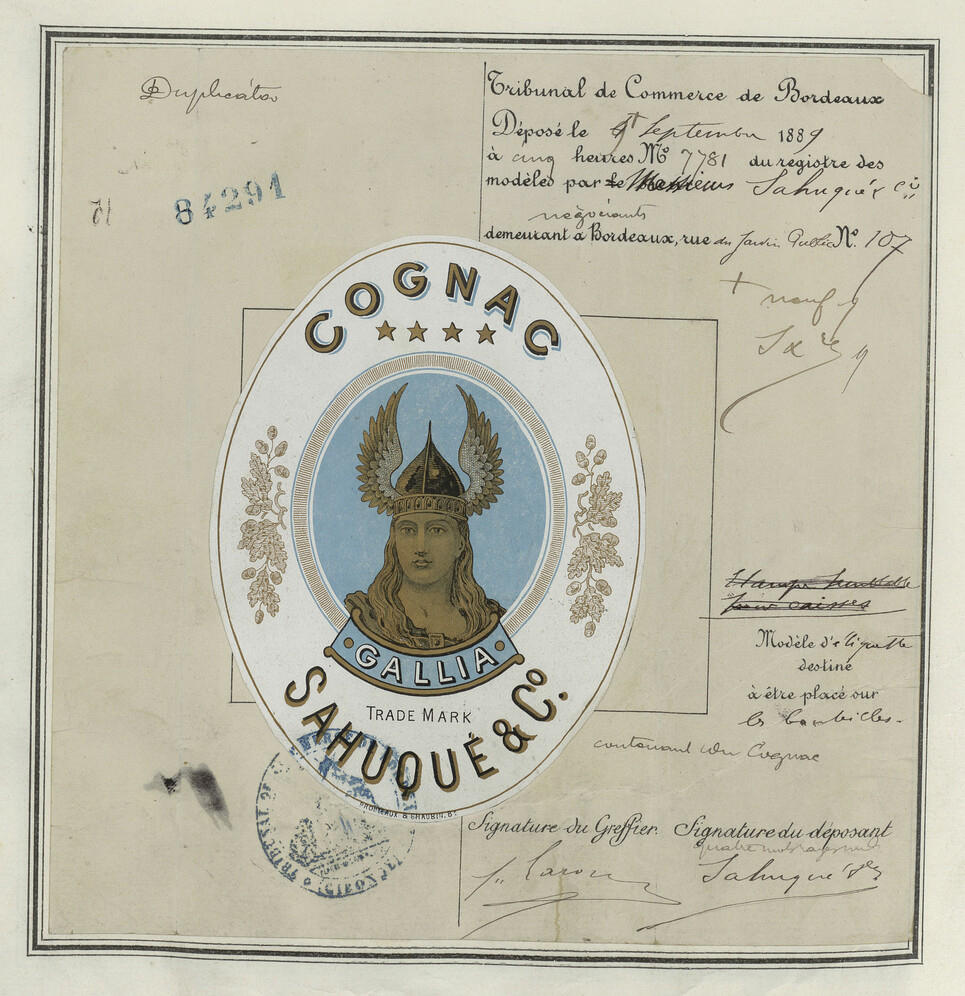 Duplicata
Tribunal de Commerce de Bordeaux
Déposé le Septembre 1889
à cinq heures No 7781 du registre des
modèles par le Messieurs Sahuqué & Cie
négociants
demeurant à Bordeaux, rue du Jardin Public No. 107
84291
+ neuf
COGNAC
GALLIA
TRADE MARK
SAHUQUÉ & Co.
caisses
Modèle d'étiquette
destiné
à être placé sur
les bouteilles
contenant du Cognac
Signature du Greffier. Signature du déposant
quatre mots rayés nuls
Sahuqué
TRIBUNAL DE
(GIRONDE)